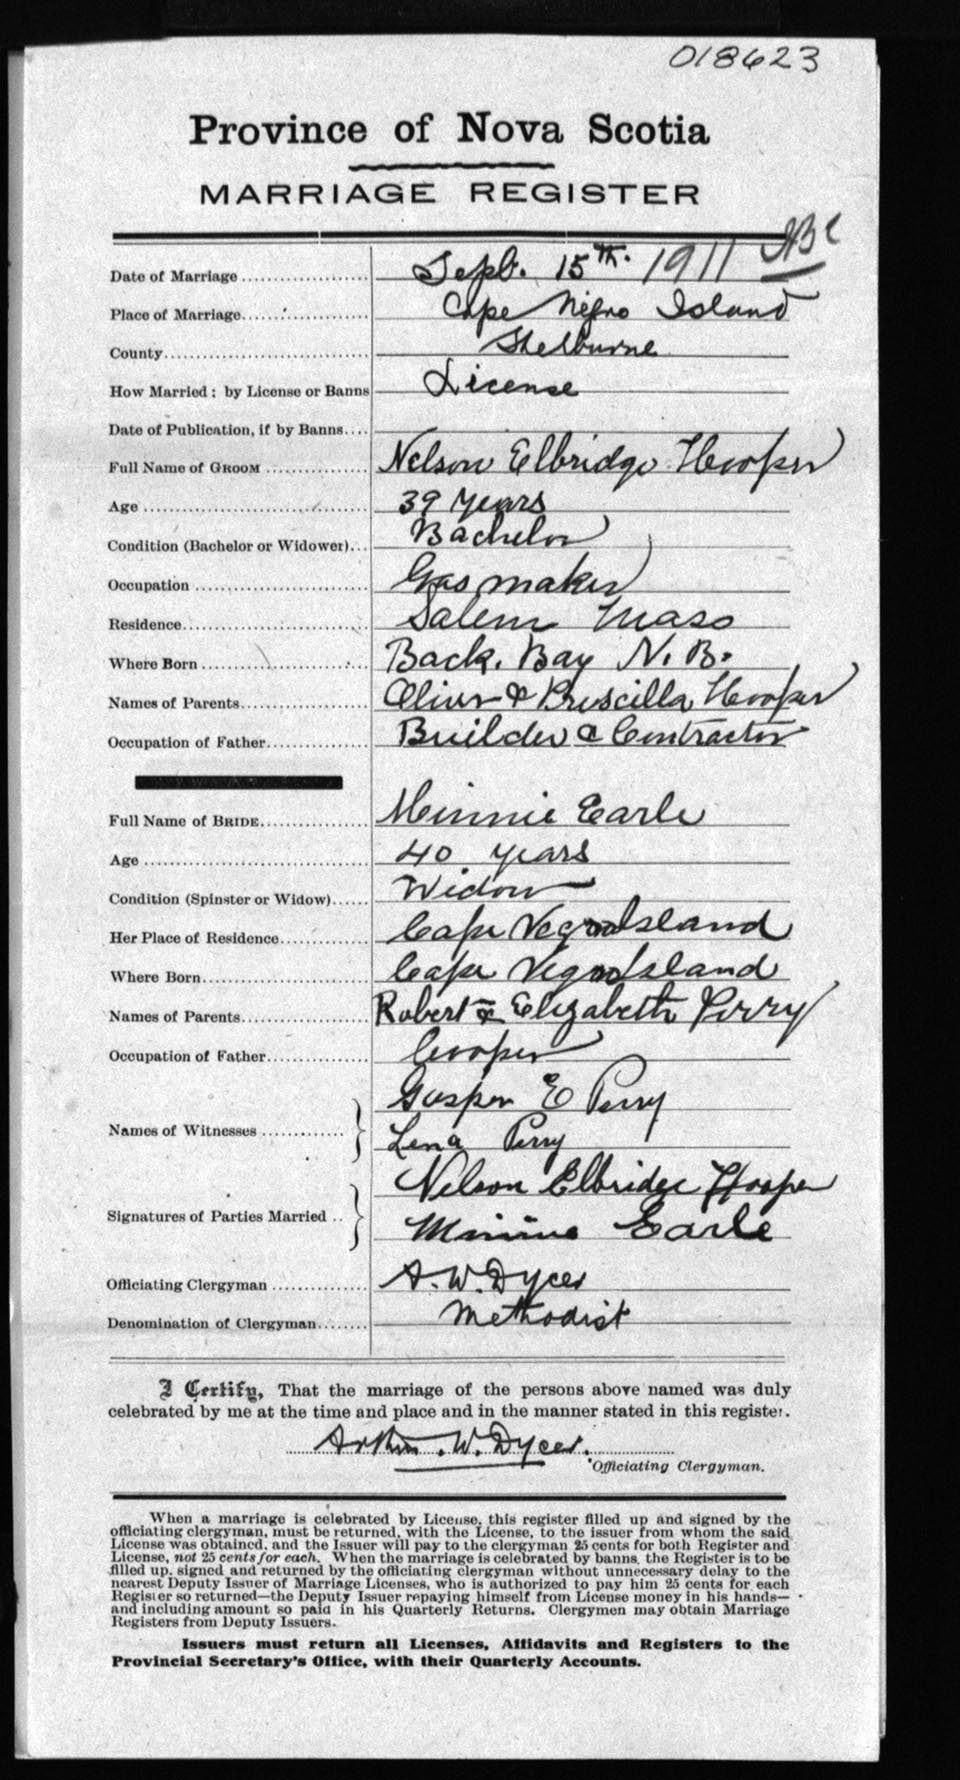 018623
Province of Nova Scotia
MARRIAGE REGISTER
Date of Marriage Sept. 15th. 1911
Place of Marriage Cape Negro Island
County Shelburne
How Married: by License or Banns License
Date of Publication, if by Banns
Full Name of GROOM Nelson Elbridge Hooper
Age 39 years
Condition (Bachelor or Widower) Bachelor
Occupation Gas maker
Residence Salem Mass
Where Born Back. Bay N. B.
Names of Parents Oliver & Priscilla Hooper
Occupation of Father Builder & Contractor
Full Name of BRIDE Minnie Earle
Age 40 years
Condition (Spinster or Widow) Widow
Her Place of Residence Cape Negro Island
Where Born Cape Negro Island
Names of Parents Robert & Elizabeth Perry
Occupation of Father Cooper
Names of Witnesses Gasper E Perry
Lena Perry
Signatures of Parties Married Nelson Elbridge Hooper
Minnie Earle
Officiating Clergyman A. W. Dycer
Denomination of Clergyman Methodist
I Certify, That the marriage of the persons above named was duly
celebrated by me at the time and place and in the manner stated in this register.
Arthur. W. Dycer.
Officiating Clergyman.
When a marriage is celebrated by License, this register filled up and signed by the
officiating clergyman, must be returned, with the License, to the issuer from whom the said
License was obtained, and the Issuer will pay to the clergyman 25 cents for both Register and
License, not 25 cents for each. When the marriage is celebrated by banns, the Register is to be
filled up, signed and returned by the officiating clergyman without unnecessary delay to the
nearest Deputy Issuer of Marriage Licenses, who is authorized to pay him 25 cents for each
Register so returned—the Deputy Issuer repaying himself from License money in his hands—
and including amount so paid in his Quarterly Returns. Clergymen may obtain Marriage
Registers from Deputy Issuers.
Issuers must return all Licenses, Affidavits and Registers to the
Provincial Secretary's Office, with their Quarterly Accounts.